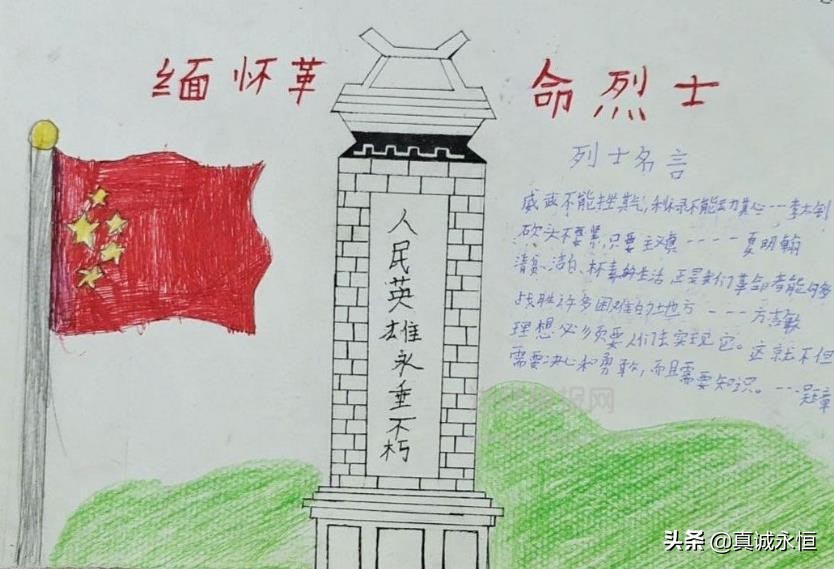 缅怀革 命烈士
烈士名言
威武不能挫其气,利禄不能动其心---李大钊
砍头不要紧,只要主义真----夏明翰
清贫、洁白、朴素的生活,正是我们革命者能够
战胜许多困难的地方---方志敏
理想必须要人们去实现它。这就不但
需要决心和勇敢,而且需要知识。---吴玉章
人民英雄永垂不朽
报网
头条 @真诚永恒